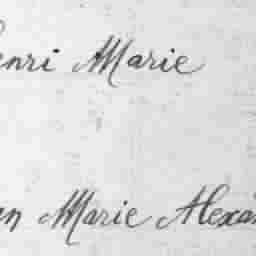 enri Marie
an Marie Alexan